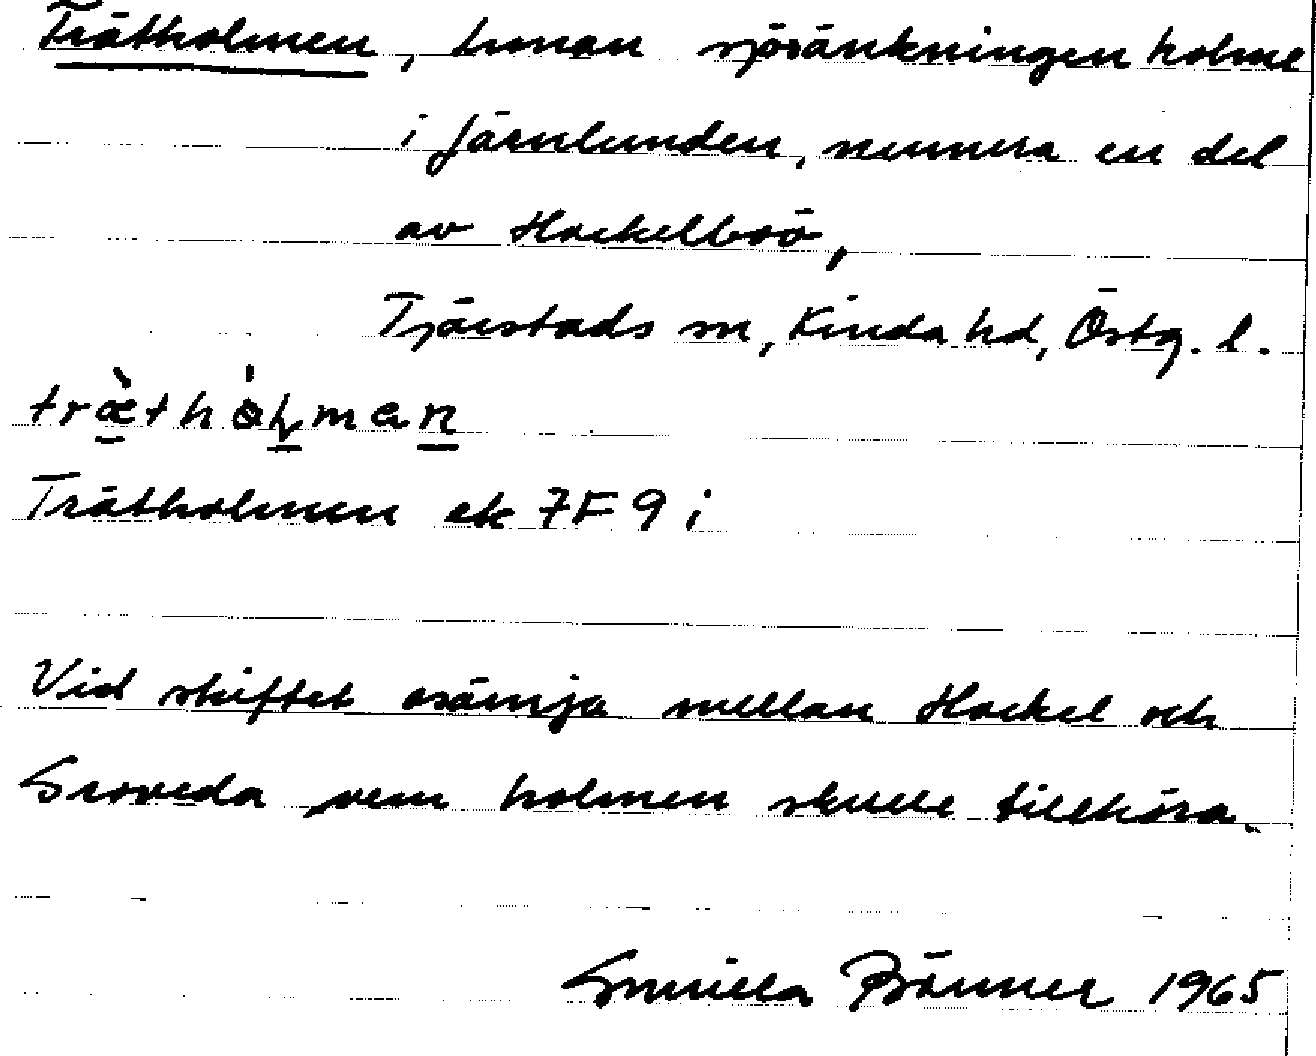 Trätholmen, innan sjösänkningen holme
i Järnlunden, numera en del
av Hackelboö,
Tjärstads sn, Kinda hd, Östg. l.
Trätholmen ek 7F 9 i
Vid skiftet osämja mellan Hackel och
Groveda vem holmen skulle tillhöra.
Gunilla Bönner 1965